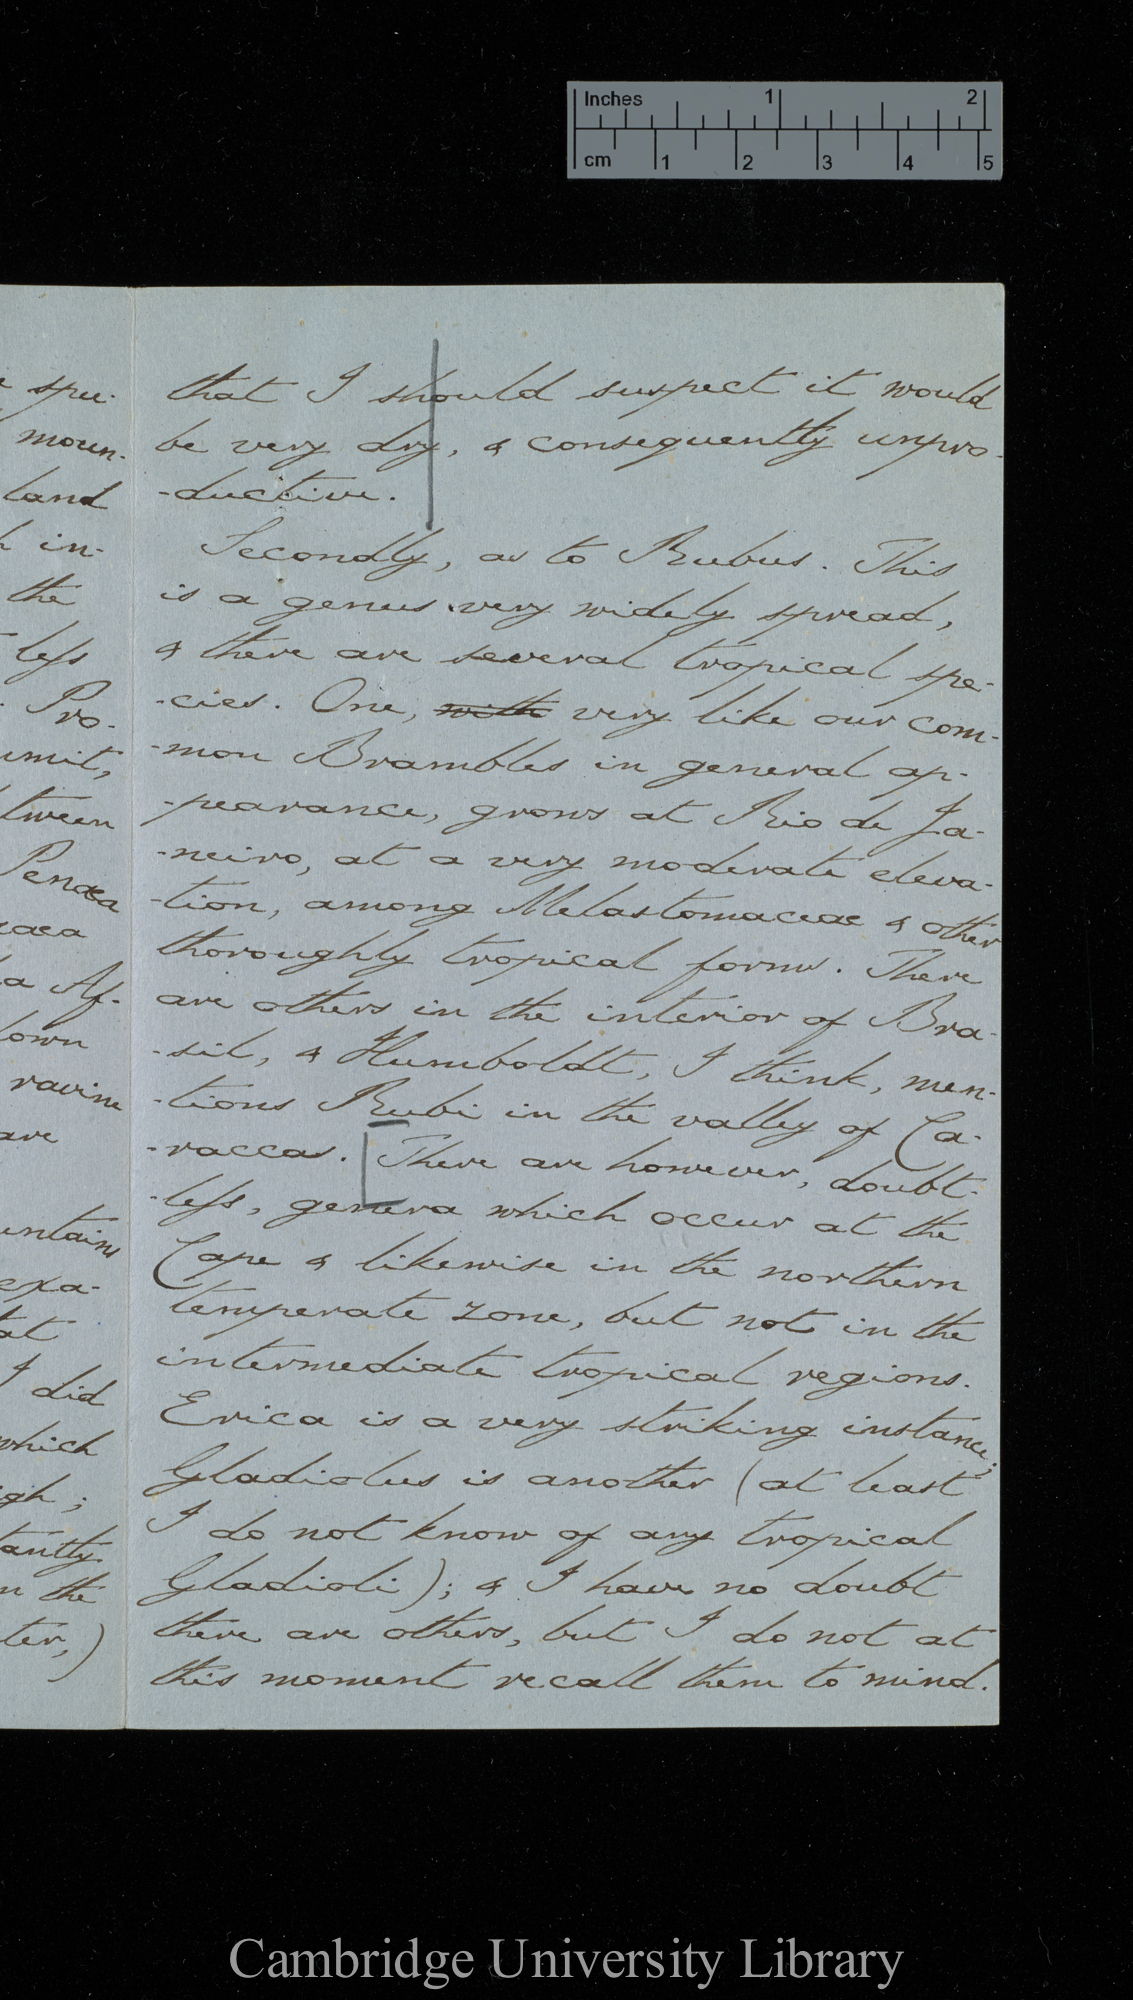 Inches 1 2
cm 1 2 3 4 5
spe-
moun-
land
in-
the
less
Pro-
tween
Penæa
Af-
ravine
are
exa-
I did
which
the
that I should suspect it would
be very dry, & consequently unpro-
-ductive.
Secondly, as to Rubus. This
is a genus very widely spread,
& there are several tropical spe-
-cies. One, with very like our com-
-mon Brambles in general ap-
-pearance, grows at Rio de Ja-
-neiro, at a very moderate eleva-
-tion, among Melastomaceae & other
thoroughly tropical forms. There
are others in the interior of Bra-
-sil, & Humboldt, I think, men-
-tions Rubi in the valley of Ca-
-raccas. [There are however, doubt-
-less, genera which occur at the
Cape & likewise in the northern
temperate zone, but not in the
intermediate tropical regions.
Erica is a very striking instance;
Gladiolus is another (at least
I do not know of any tropical
Gladioli); & I have no doubt
there are others, but I do not at
this moment recall them to mind.
Cambridge University Library